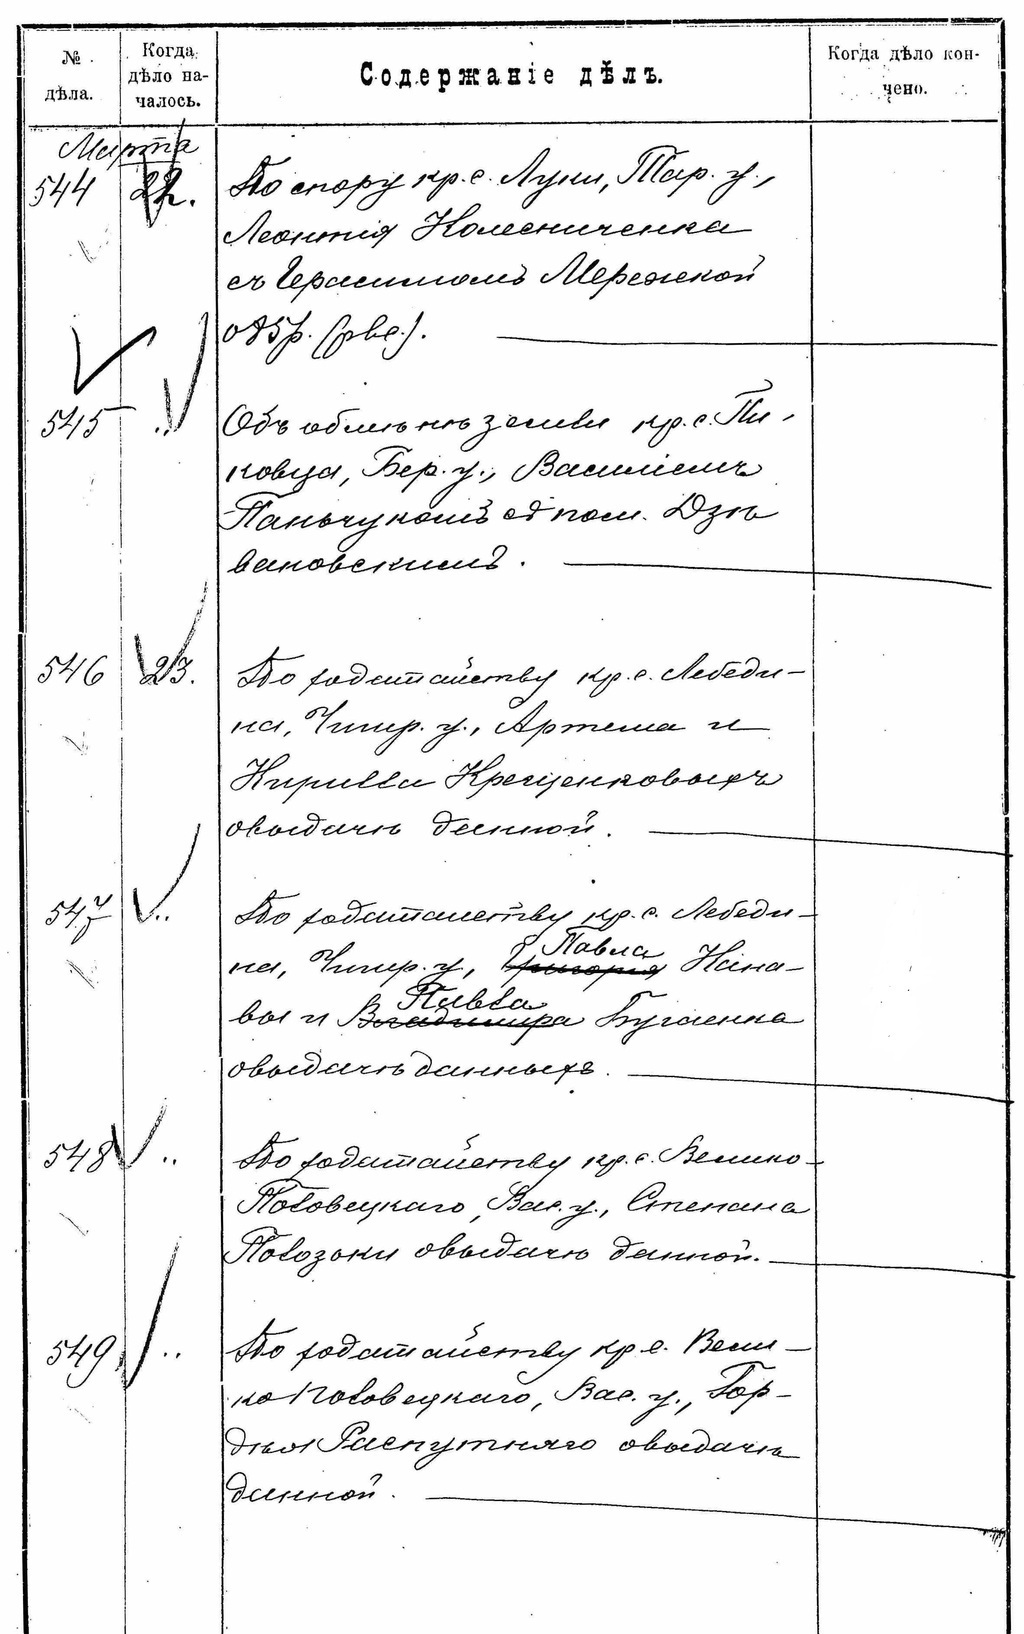 № дѣла.
Когда дѣло на-
чалось.
Содержаніе дѣлъ.
Когда дѣло кон-
чено.
Марта
544 22. По спору кр. с. Луки, Тар. у.,
Леонтія Колесниченка
съ Герасимомъ Мережкой
о 85 р.
545 .. Объ обмѣнѣ земли кр. с. Пи-
ковца, Бер. у., Василіемъ
Паньчукомъ съ пом. Дзѣ
вановскимъ.
546 23. По ходатайству кр. с. Лебеди-
на, Чигир. у., Артема и
Кирилла Крещенковыхъ
о выдачѣ данной.
547 .. По ходатайству кр. с. Лебеди-
на, Чигир. у., Григорія Павла Кана-
вы и Владимира Павла Бугаенка
о выдачѣ данныхъ.
548 .. По ходатайству кр. с. Велико-
Половецкаго, Вас. у., Степана
Повозоки о выдачѣ данной.
549 .. По ходатайству кр. с. Вели-
ко Половецкаго, Вас. у., Гор-
дѣя Распутняго о выдачѣ
данной.